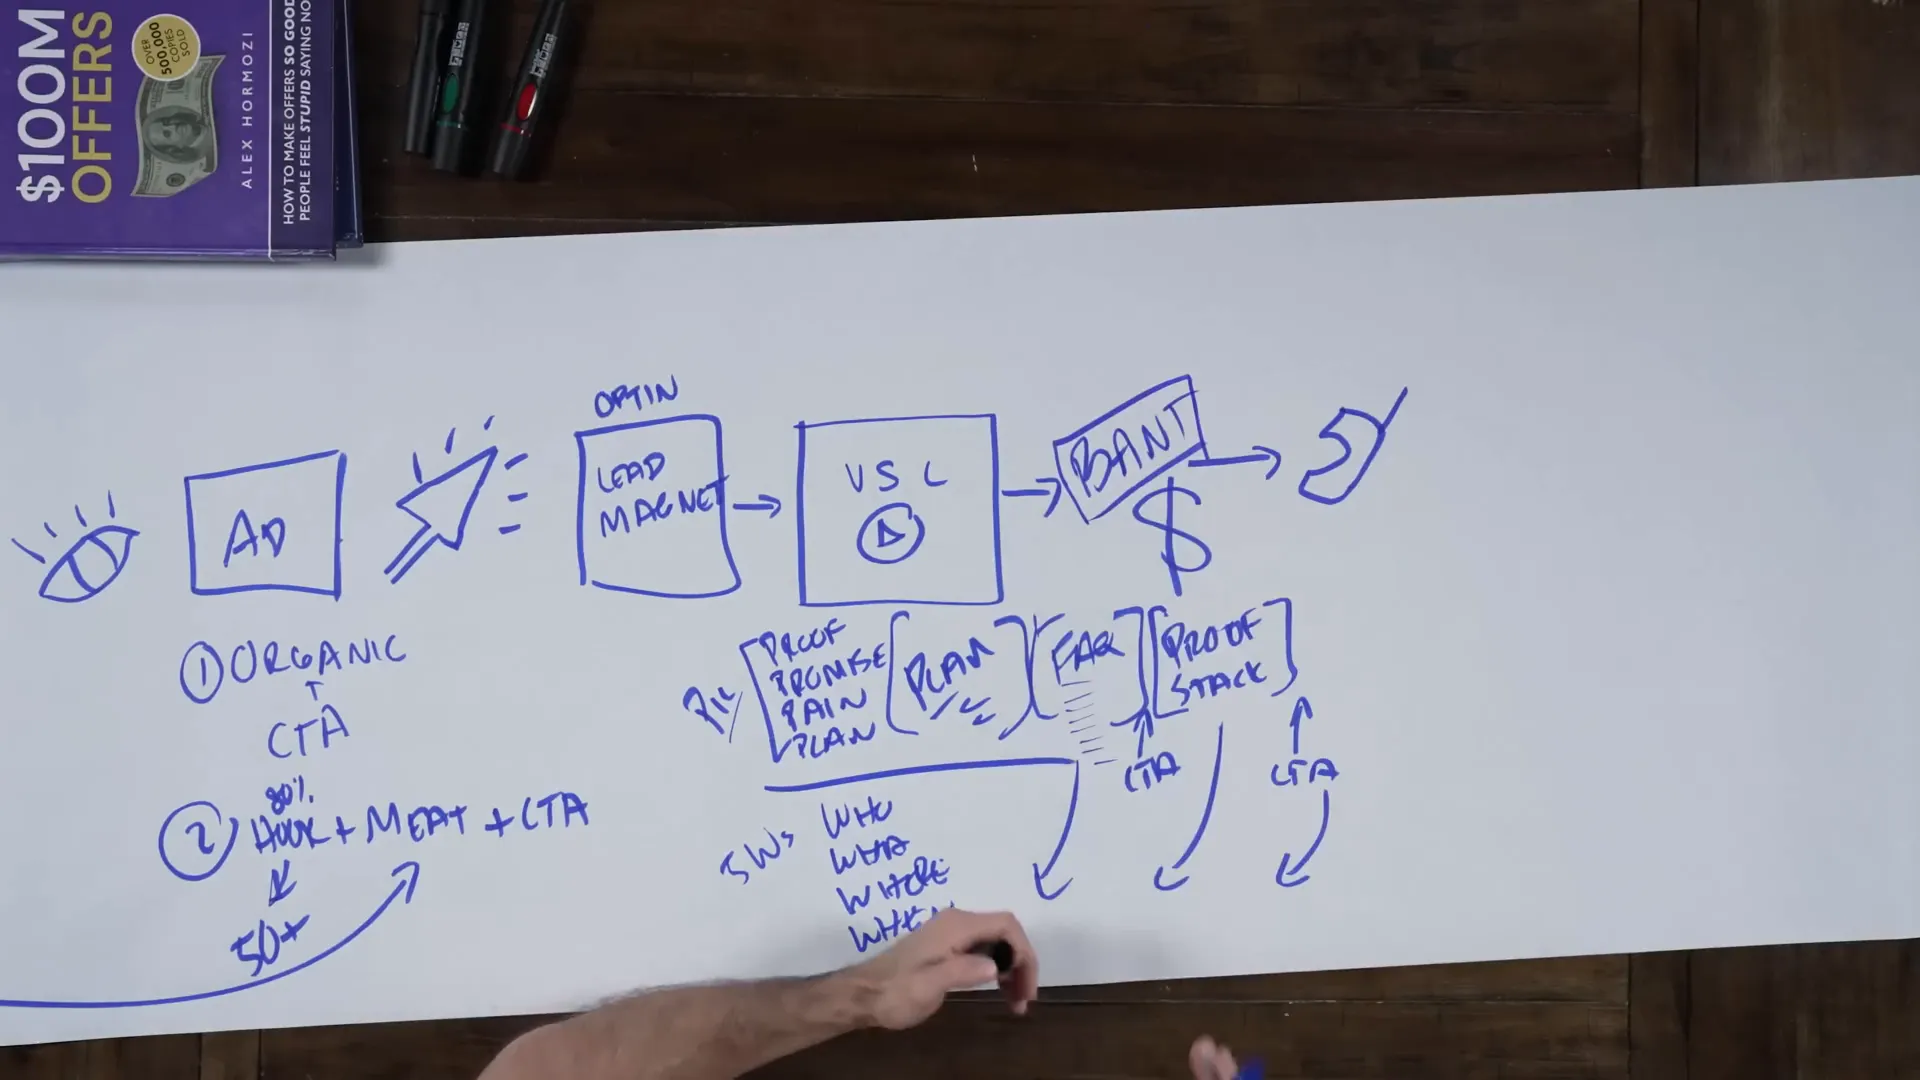 $100M
OFFERS
OVER
500,000
COPIES
SOLD
ALEX HORMOZI
HOW TO MAKE OFFERS SO GOOD
PEOPLE FEEL STUPID SAYING NO
OPTIN
AD
LEAD
MAGNET
VSL
BANT
$
① ORGANIC
CTA
80%
② HOOK + MEAT + CTA
50+
PROOF
PROMISE
PAIN
PLAN
[PLAN]
[FAQ]
[PROOF
STACK]
CTA
CTA
5 W's
WHO
WHA
WHERE
WHEN